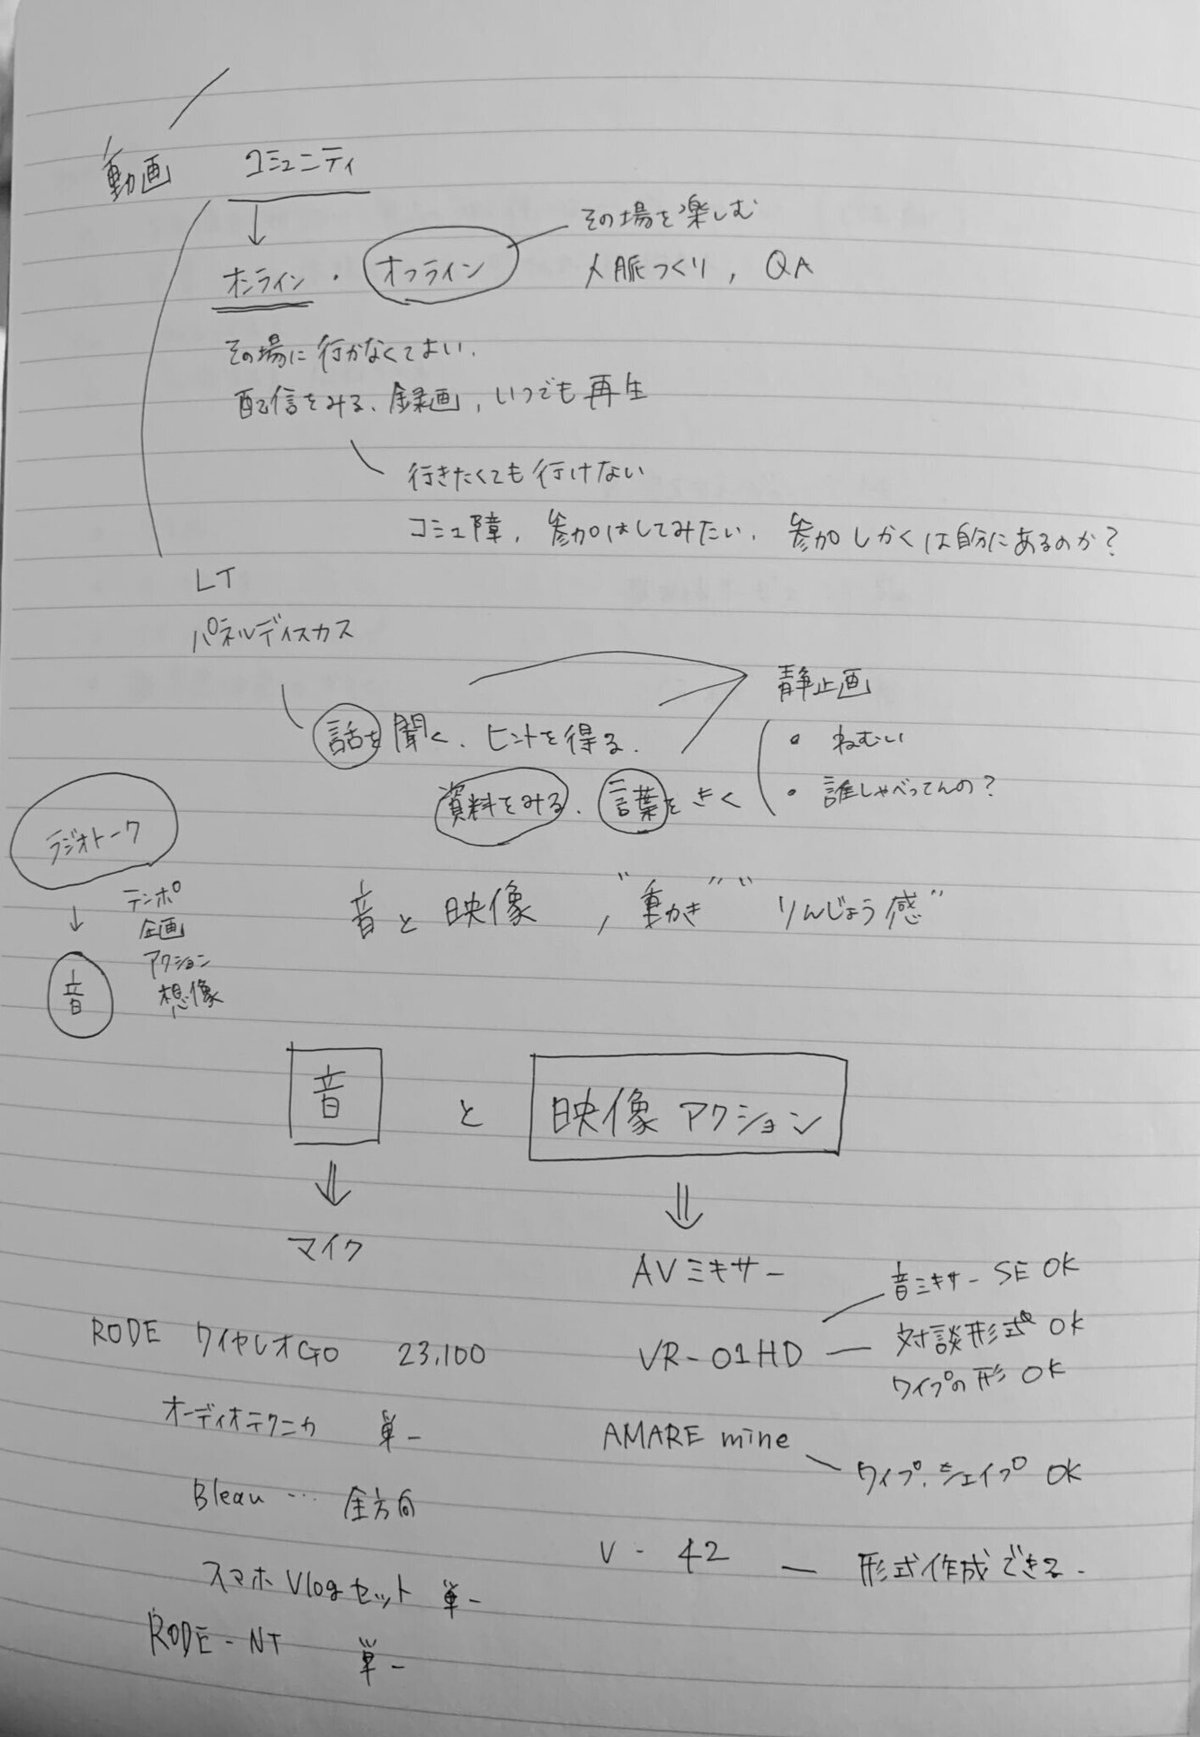 動画 コミュニティ
その場を楽しむ
オンライン・オフライン
人脈つくり, QA
その場に行かなくてよい.
配信をみる、録画, いつでも再生
行きたくても行けない
コミュ障, 参加はしてみたい, 参加しかくは自分にあるのか?
LT
パネルディスカス
静止画
話を聞く、ヒントを得る.
・ねむい
資料をみる、言葉をきく
・誰しゃべってんの?
ラジオトーク
テンポ
企画
アクション
想像
音
音と映像, "動き" "りんじょう感"
音 と 映像 アクション
マイク
AVミキサー
音ミキサー SE OK
RODE ワイヤレスGO 23,100
VR-01HD
対談形式 OK
ワイプの形 OK
オーディオテクニカ 単一
AMARE mine
ワイプ.シェイプ OK
Bleau … 全方向
V-42 ― 形式作成できる.
スマホVlogセット 単一
RODE-NT 単一